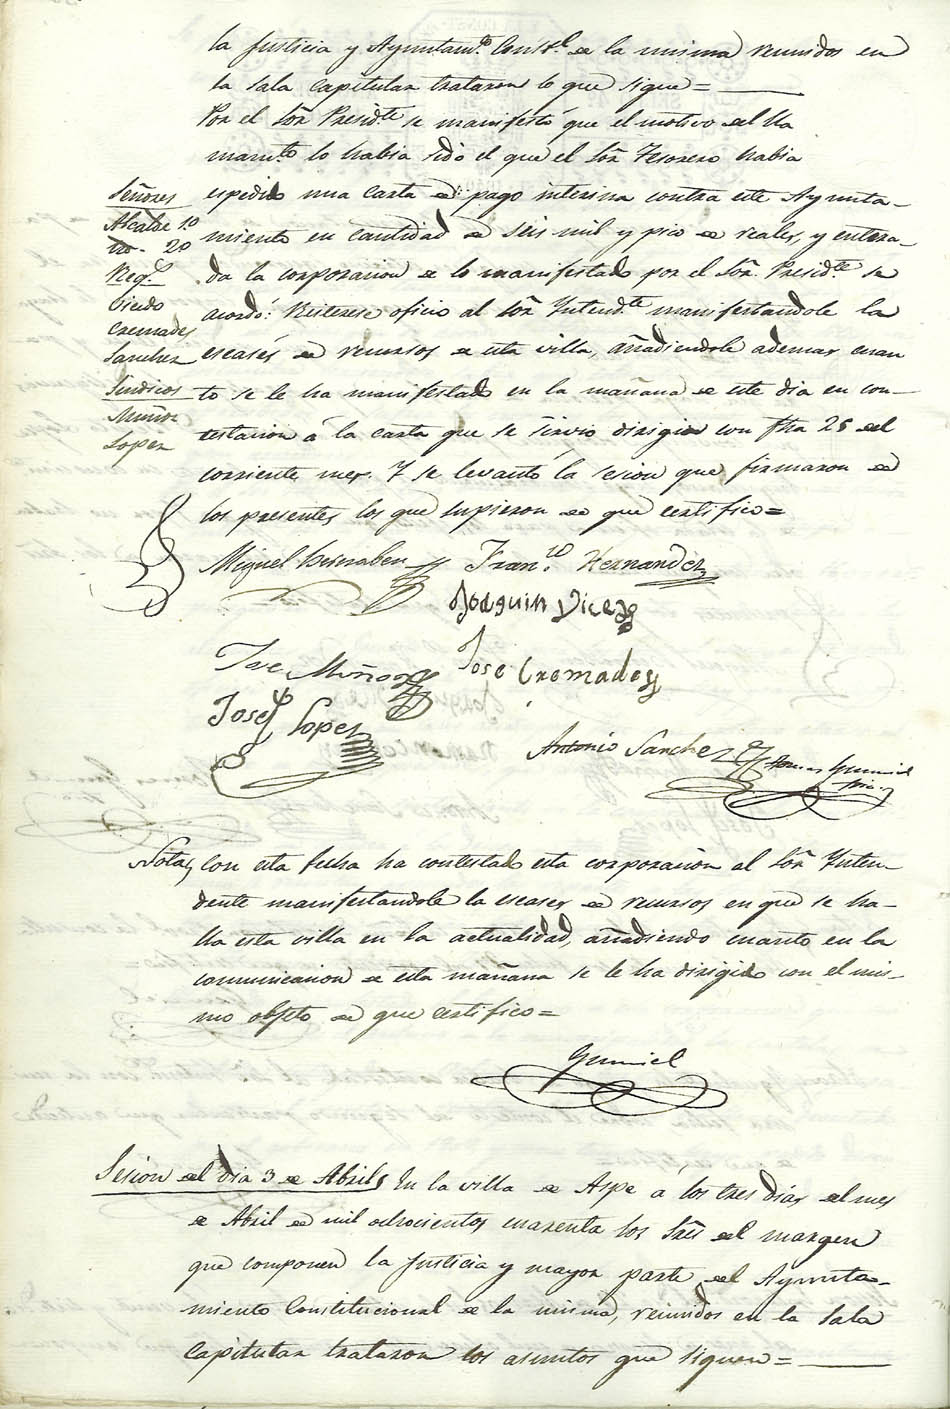 la Justicia y Ayuntam.to Const.l de la misma reunidos en
la Sala capitular trataron lo que sigue=
Por el Sõr Presid.te se manifestó que el motivo del lla
mam.to lo habia sido el que el Sõr Tesorero habia
espedido una carta de pago interina contra este Ayunta-
miento en cantidad de seis mil y pico de reales, y entera-
da la corporacion de lo manifestado por el Sõr. Presid.te se
acordó: Reiterese oficio al Sõr Yntend.te manifestandole la
escasés de recursos de esta villa, añadiendole ademas cuan
to se le ha manifestado en la mañana de este dia en con-
testacion á la carta que se sirvio dirigir con fha 28 del
corriente mes. Y se levantó la sesion que firmaron de
los presentes los que supieron de que certifico=
Señores
Alcalde 1o
Yd. 2o
Reg.s
Vicedo
Cremades
Sanchez
Sindicos
Muñoz
Lopez
Miguel Fran.co Hernandez
Joaquin Vicedo
Jose Muñoz Jose Cremades
Josef Lopez
Antonio Sanchez Gumiel
Srio.
Nota, Con esta fecha ha contestado esta corporacion al Sõr Ynten-
dente manifestandole la escases de recursos en que se ha-
lla esta villa en la actualidad, añadiendo cuanto en la
comunicacion de esta mañana se le ha dirigido con el mis-
mo objeto de que certifico=
Gumiel
Sesion del dia 3 de Abril, En la villa de Aspe á los tres dias del mes
de Abril de mil ochocientos cuarenta los Sres del margen
que componen la Justicia y mayor parte del Ayunta-
miento Constitucional de la misma, reunidos en la Sala
capitular trataron los asuntos que siguen=